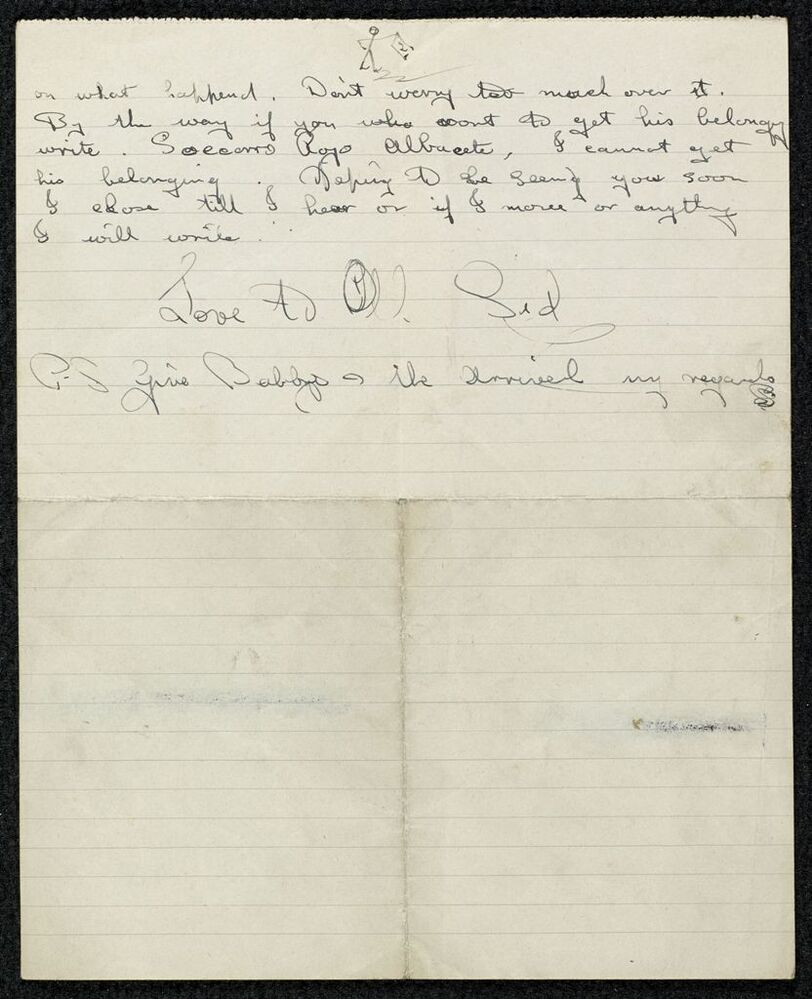 2.
on what happend. Don't worry too much over it.
By the way if you who want to get his belonging
write. Soccorro Rojo Albacete, I cannot get
his belonging. Hoping to be seeing you soon
I close till I hear or if I move or anything
I will write.
Love to All. Sid
P.S give Babbs & the my regards